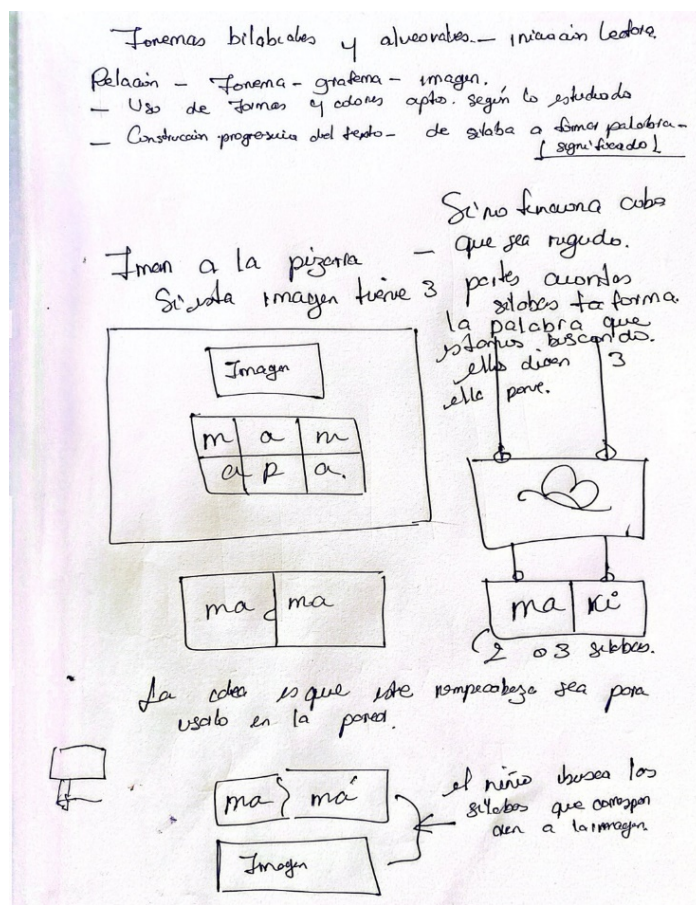 Fonemas bilabiales y alveorales. — iniciación lectora.
Relación - Fonema - grafema - imagen.
— Uso de formas y colores apto. según lo estudiado
— Construcción progresiva del texto - de sílaba a formar palabra -
[significado]
Si no funciona cubo
— que sea rugudo.
Iman a la pizarra
Si esta imagen tiene 3 partes cuantas
sílabas forma
la palabra que
estamos buscando.
ellos dicen 3
ella pone.
Imagen
m a m
a p a.
ma ma
ma ri
(2 o 3 sílabas.
La idea es que este rompecabeza sea para
usarlo en la pared.
ma má
Imagen
el niño busca las
sílabas que correspon
den a la imagen.